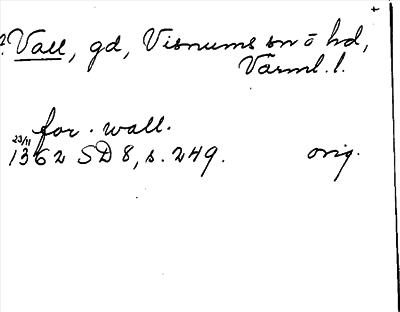 ?Vall, gd, Visnums sn ō hd,
Värml. l.
for. wall.
23/11
1362 SD 8, s. 249. orig.